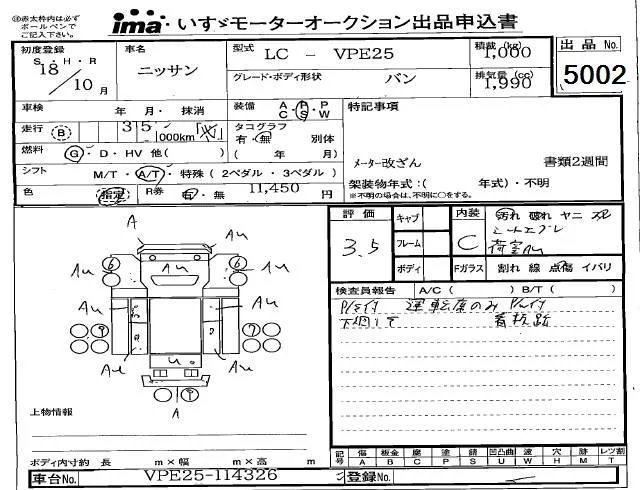 ※赤太枠内は必ず
ボールペンで
ご記入下さい。
ima いすゞモーターオークション出品申込書
初度登録
S・H・R
18
10 月
車名
ニッサン
型式 LC - VPE25
グレード・ボディ形状 バン
積載 (kg)
1,000
排気量 (cc)
1,990
出品 No.
5002
車検 年 月・ 抹消
装備 A・R・P
C・S・W
特記事項
走行 (B) 3 5 ,000km
タコグラフ
有・無 別体
( 年 月)
燃料 G・D・HV 他( )
シフト M/T・A/T・特殊 (2ペダル・3ペダル)
メーター改ざん 書類2週間
架装物年式:( 年式)・不明
※不明の場合は、不明に○をする。
色 指定 R券 有・無 11,450 円
評価
3.5
キャブ
フレーム
ボディ
内装
C
汚れ 破れ ヤニ スレ
荷室AU
Fガラス 割れ 線 点傷 イバリ
検査員報告 A/C ( ) B/T ( )
運転席のみ
下廻りサビ 看板跡
A
Au
Au
Au
Au
Au
Au
Au
Au
A
上物情報
ボディ内寸約 長 m×幅 m×高 m
記号 傷 板金 腐 塗 錆 凹凸曲 波 穴 飛 レツ割
A B C P S U W H M T
車台No. VPE25-114326
登録No.